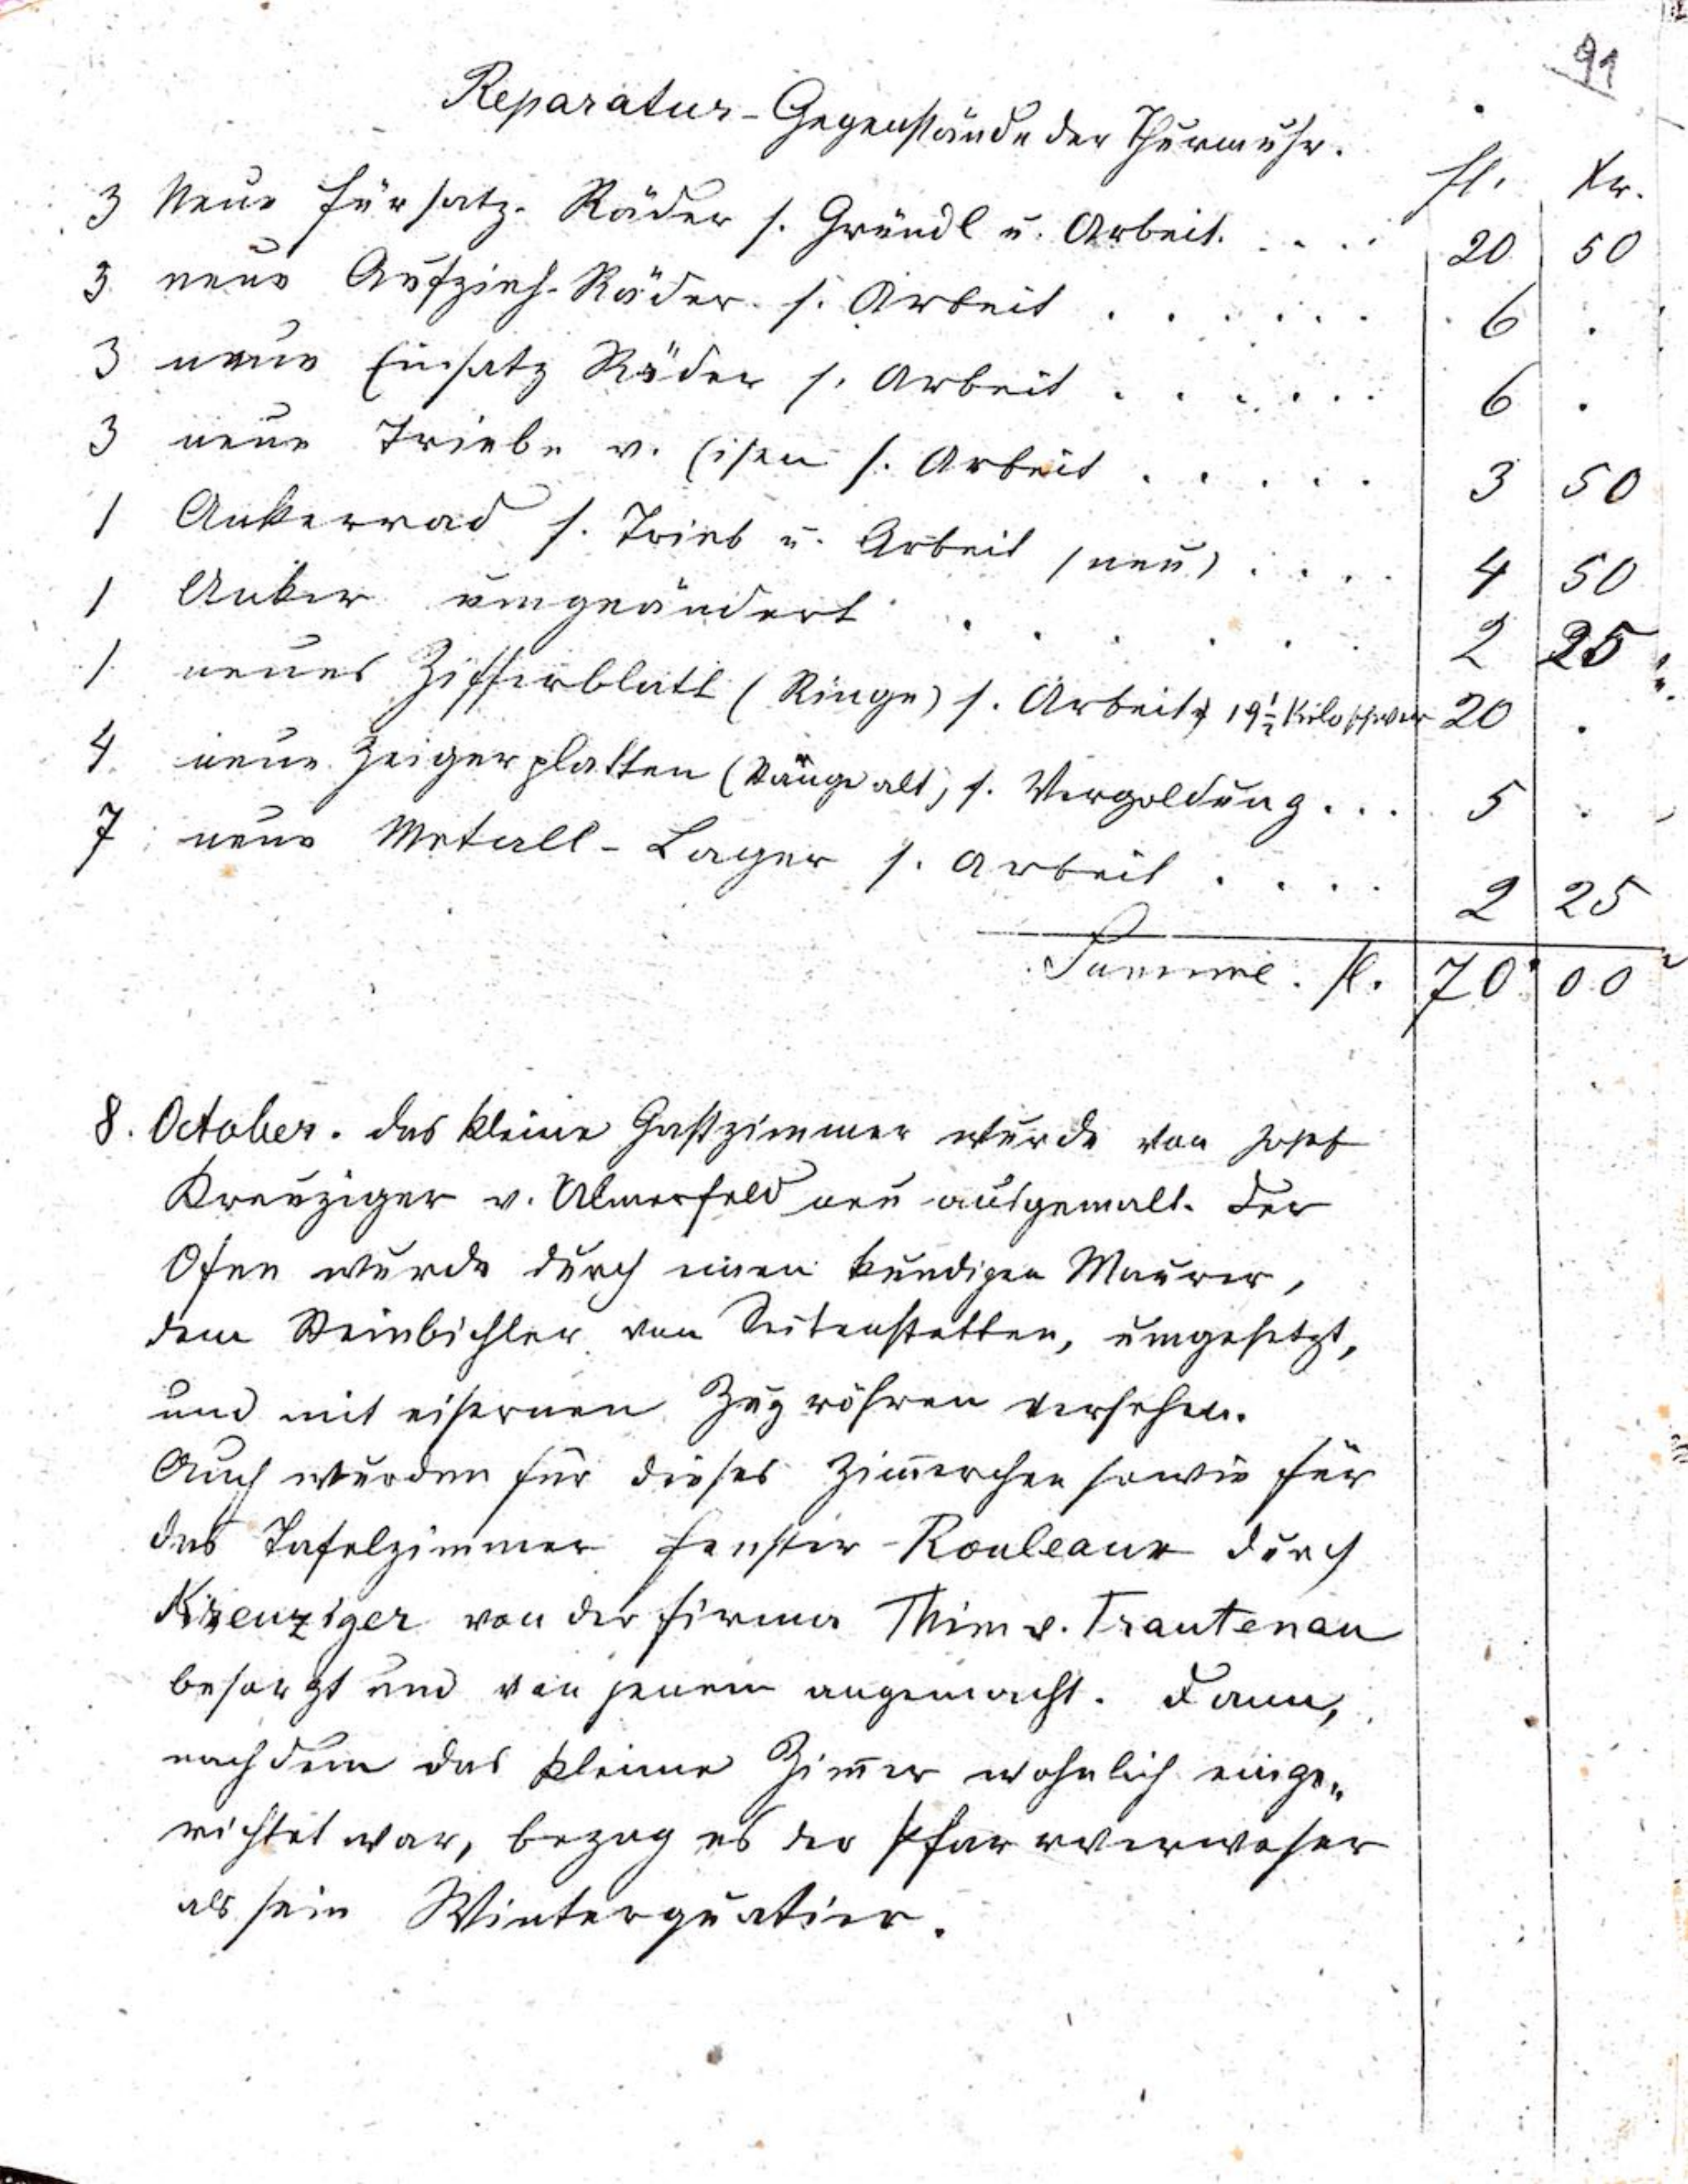 91
Reparatur-Gegenstände der Thurmuhr.
fl. Xr.
3 Neue Fürsatz-Räder s. Gründl u. Arbeit. . . . . 20 50
3 neue Aufzieh-Räder s. Arbeit . . . . . . 6 .
3 neue Einsatz Räder s. Arbeit . . . . . . 6 .
3 neue Triebe v. Eisen s. Arbeit . . . . . 3 50
1 Ankerrad s. Trieb u. Arbeit (neu) . . . . 4 50
1 Anker umgeändert . . . . . . 2 25
1 neues Zifferblatt (Ringe) s. Arbeit, 19 1/2 Kilo schwer 20 .
4 neue Zeigerplatten (Stange alt) s. Vergoldung . . . 5 .
7 neue Metall-Lager s. Arbeit . . . . 2 25
Summe. fl. 70 00
8. October. das kleine Gastzimmer wurde von Josef
Kreuziger v. Ulmerfeld neu ausgemalt. Der
Ofen wurde durch einen kundigen Maurer,
dem Steinbichler von Seitenstetten, umgesetzt,
und mit eisernen Zugröhren versehen.
Auch wurden für dieses Zim̅erchen sowie für
das Tafelzimmer Fenster-Rouleaux durch
Kreuziger von der Firma Thim v. Trautenau
besorgt und von jenem angemacht. Dann,
nachdem das kleine Zim̅er wohnlich einge„
richtet war, bezog es der Pfarrverweser
als sein Winterquatier.